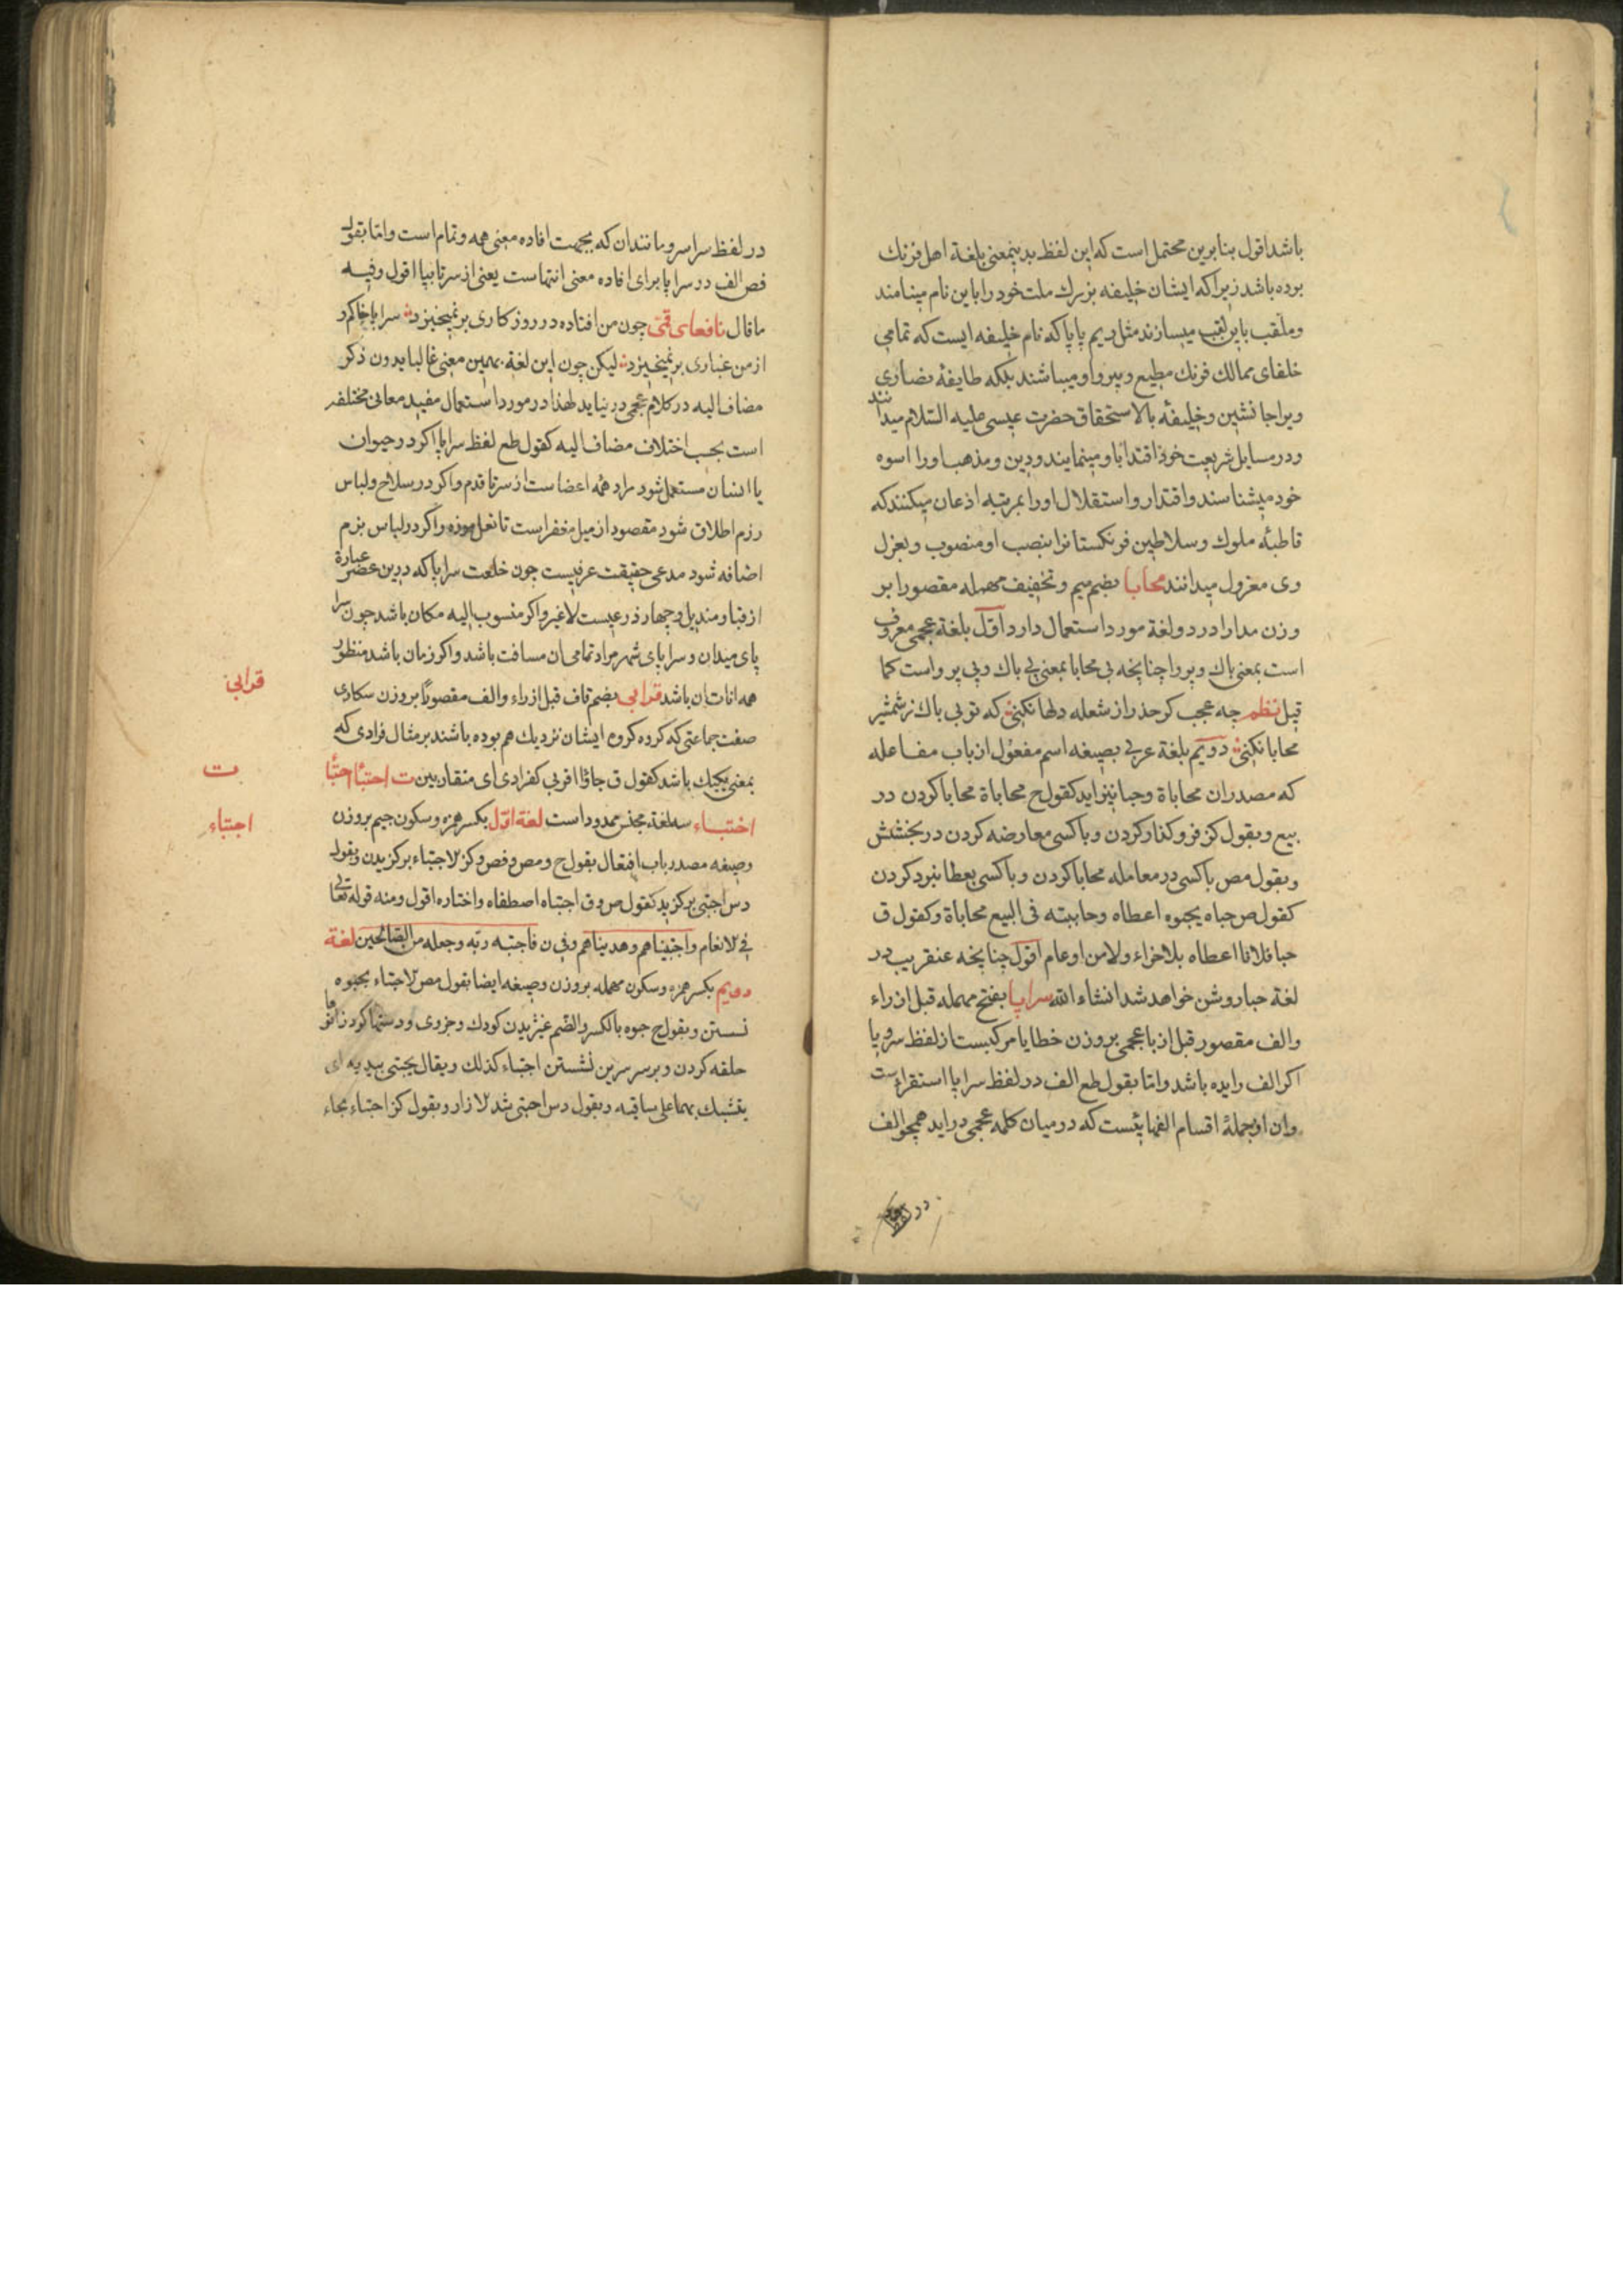 باشد اقول بنابرین محتمل است که این لفظ بدینمعنی بلغة اهل فرنك
بوده باشد زیرا که ایشان خلیفه بزرك ملت خود را باین نام مینامند
وملقب باین لقب میسازند مثل ریم پاپا که نام خلیفه ایست که تمامی
خلفای ممالك فرنك مطیع وپیرو او میباشند بلکه طایفهٔ نصاری
ویرا جانشین وخلیفهٔ بالاستحقاق حضرت عیسی علیه السّلام میدانند
ودر مسایل شریعت خود اقتدا باو مینمایند ودین ومذهب اورا اسوه
خود میشناسند واقتدار واستقلال اورا بمرتبه اذعان میکنند که
قاطبهٔ ملوك وسلاطین فرنکستانرا بنصب او منصوب وبعزل
وی معزول میدانند محابا بضم میم وتخفیف مهمله مقصورا بر
وزن مدارا در دو لغة مورد استعمال دارد اوّل بلغة عجمی معروف
است بمعنی باك وپروا چنانچه بی محابا بمعنی بی باك وبی پرواست کما
قیل نظم چه عجب کر حذر از شعله دلها نکنی که تو بی باك ز شمشیر
محابا نکنی دویم بلغة عربی بصیغه اسم مفعول از باب مفاعله
که مصدر ان محاباة وحبا نیز اید کقول ح محاباة محابا کردن در
بیع وبقول کز فرو کذار کردن وبا کسی معارضه کردن در بخشش
وبقول مص با کسی در معامله محابا کردن وبا کسی بعطا نبرد کردن
کقول ص حباه یحبوه اعطاه وحابیته فی البیع محاباة وکقول ق
حبا فلانا اعطاه بلا جزاء ولا من او عام اقول چنانچه عنقریب در
لغة حبا روشن خواهد شد انشاء الله سراپا بفتح مهمله قبل از راء
والف مقصور قبل از با عجمی بر وزن خطایا مرکبست از لفظ سر و پا
اکر الف زایده باشد وامّا بقول طع الف در لفظ سراپا استقراء ست
وان از جملهٔ اقسام الفهائیست که در میان کلمه عجمی در اید همچو الف
در لفظ
در لفظ سراسر ومانند ان که بجهت افاده معنی همه وتمام است وامّا بقول
فص الف در سراپا برای افاده معنی انتهاست یعنی از سر تا بپا اقول وفیه
ما قال نافعای قمی چون من افتاده در روز کاری برنمیخیزد سراپا خاکم و
از من غباری برنمیخیزد لیکن چون این لغة بهمین معنی غالبا بدون ذکر
مضاف الیه در کلام عجمی در نیاید لهذا در مورد استعمال مفید معانی مختلفه
است بحسب اختلاف مضاف الیه کقول طع لفظ سراپا اکر در حیوان
یا انسان مستعمل شود مراد همه اعضاست از سر تا قدم واکر در سلاح ولباس
رزم اطلاق شود مقصود از میل مغفر است تا نعل موزه واکر در لباس بزم
اضافه شود مدعی حقیقت عرفیست چون خلعت سراپا که درین عصر عبارة
از قبا ومندیل وچهار ذرعیست لاغیر واکر منسوب الیه مکان باشد چون سرا
پای میدان وسراپای شهر مراد تمامی ان مسافت باشد واکر زمان باشد منظور
همه انات ان باشد قرابی بضم قاف قبل از راء والف مقصورًا بر وزن سکاری
صفت جماعتی که کروه کروه ایشان نزدیك هم بوده باشند بر مثال فرادی که
بمعنی یکیك باشد کقول ق جاؤا قرابی کفرادی ای متقاربین ت اجتبا احتبا
اختباء سه لغة مجنس ممدود است لغة اوّل بکسر همزه وسکون جیم بر وزن
وصیغه مصدر باب افتعال بقول ح ومص وفص وکز لاجتباء برکزیدن وبقول
دس اجتبی برکزید کقول ص وق اجتباه اصطفاه واختاره اقول ومنه قوله تعالی
فی لانعام واجتبیناهم وهدیناهم وفی ن فاجتبه ربّه وجعله من الصّالحین لغة
دویم بکسر همزه وسکون مهمله بر وزن وصیغه ایضا بقول مص لاحتباء بحبوه
نشستن وبقول ح حبوه بالکسر والضّم
حلقه کردن وبر سر سرین نشستن احتباء کذلك ویقال یحتبی بیدیه ای
یتشبك بهما علی ساقیه وبقول دس احتبی شد لازار وبقول کز احتباء بحاء
قرابی
ت
اجتباء